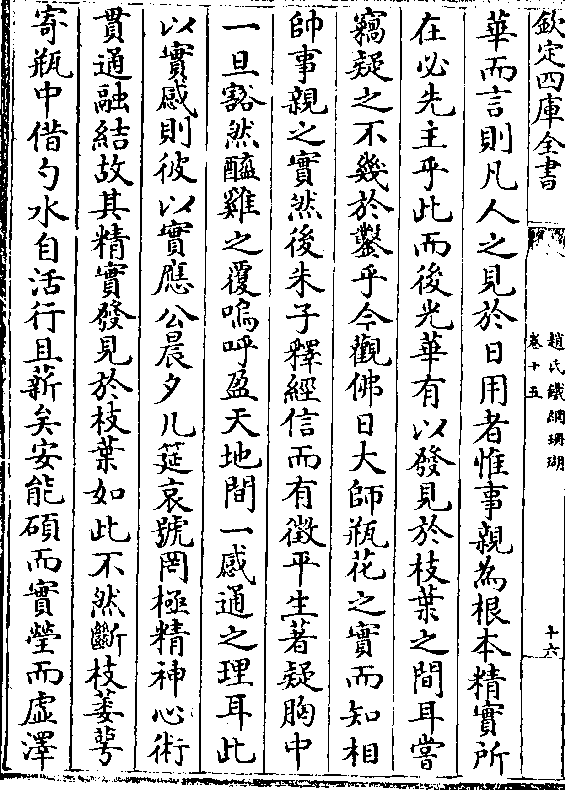 欽定四庫全書
趙氏鐵網珊瑚
卷十五
十六
華而言則凡人之見於日用者惟事親為根本精實所
在必先主乎此而後光華有以發見於枝葉之間耳嘗
竊疑之不幾於鑿乎今觀佛日大師瓶花之實而知相
帥事親之實然後朱子釋經信而有徵平生著疑胸中
一旦豁然醯雞之覆嗚呼盈天地間一感通之理耳此
以實感則彼以實應公晨夕几筵哀號罔極精神心術
貫通融結故其精實發見於枝葉如此不然斷枝萎萼
寄瓶中借勺水自活行且薪矣安能碩而實瑩而虛澤